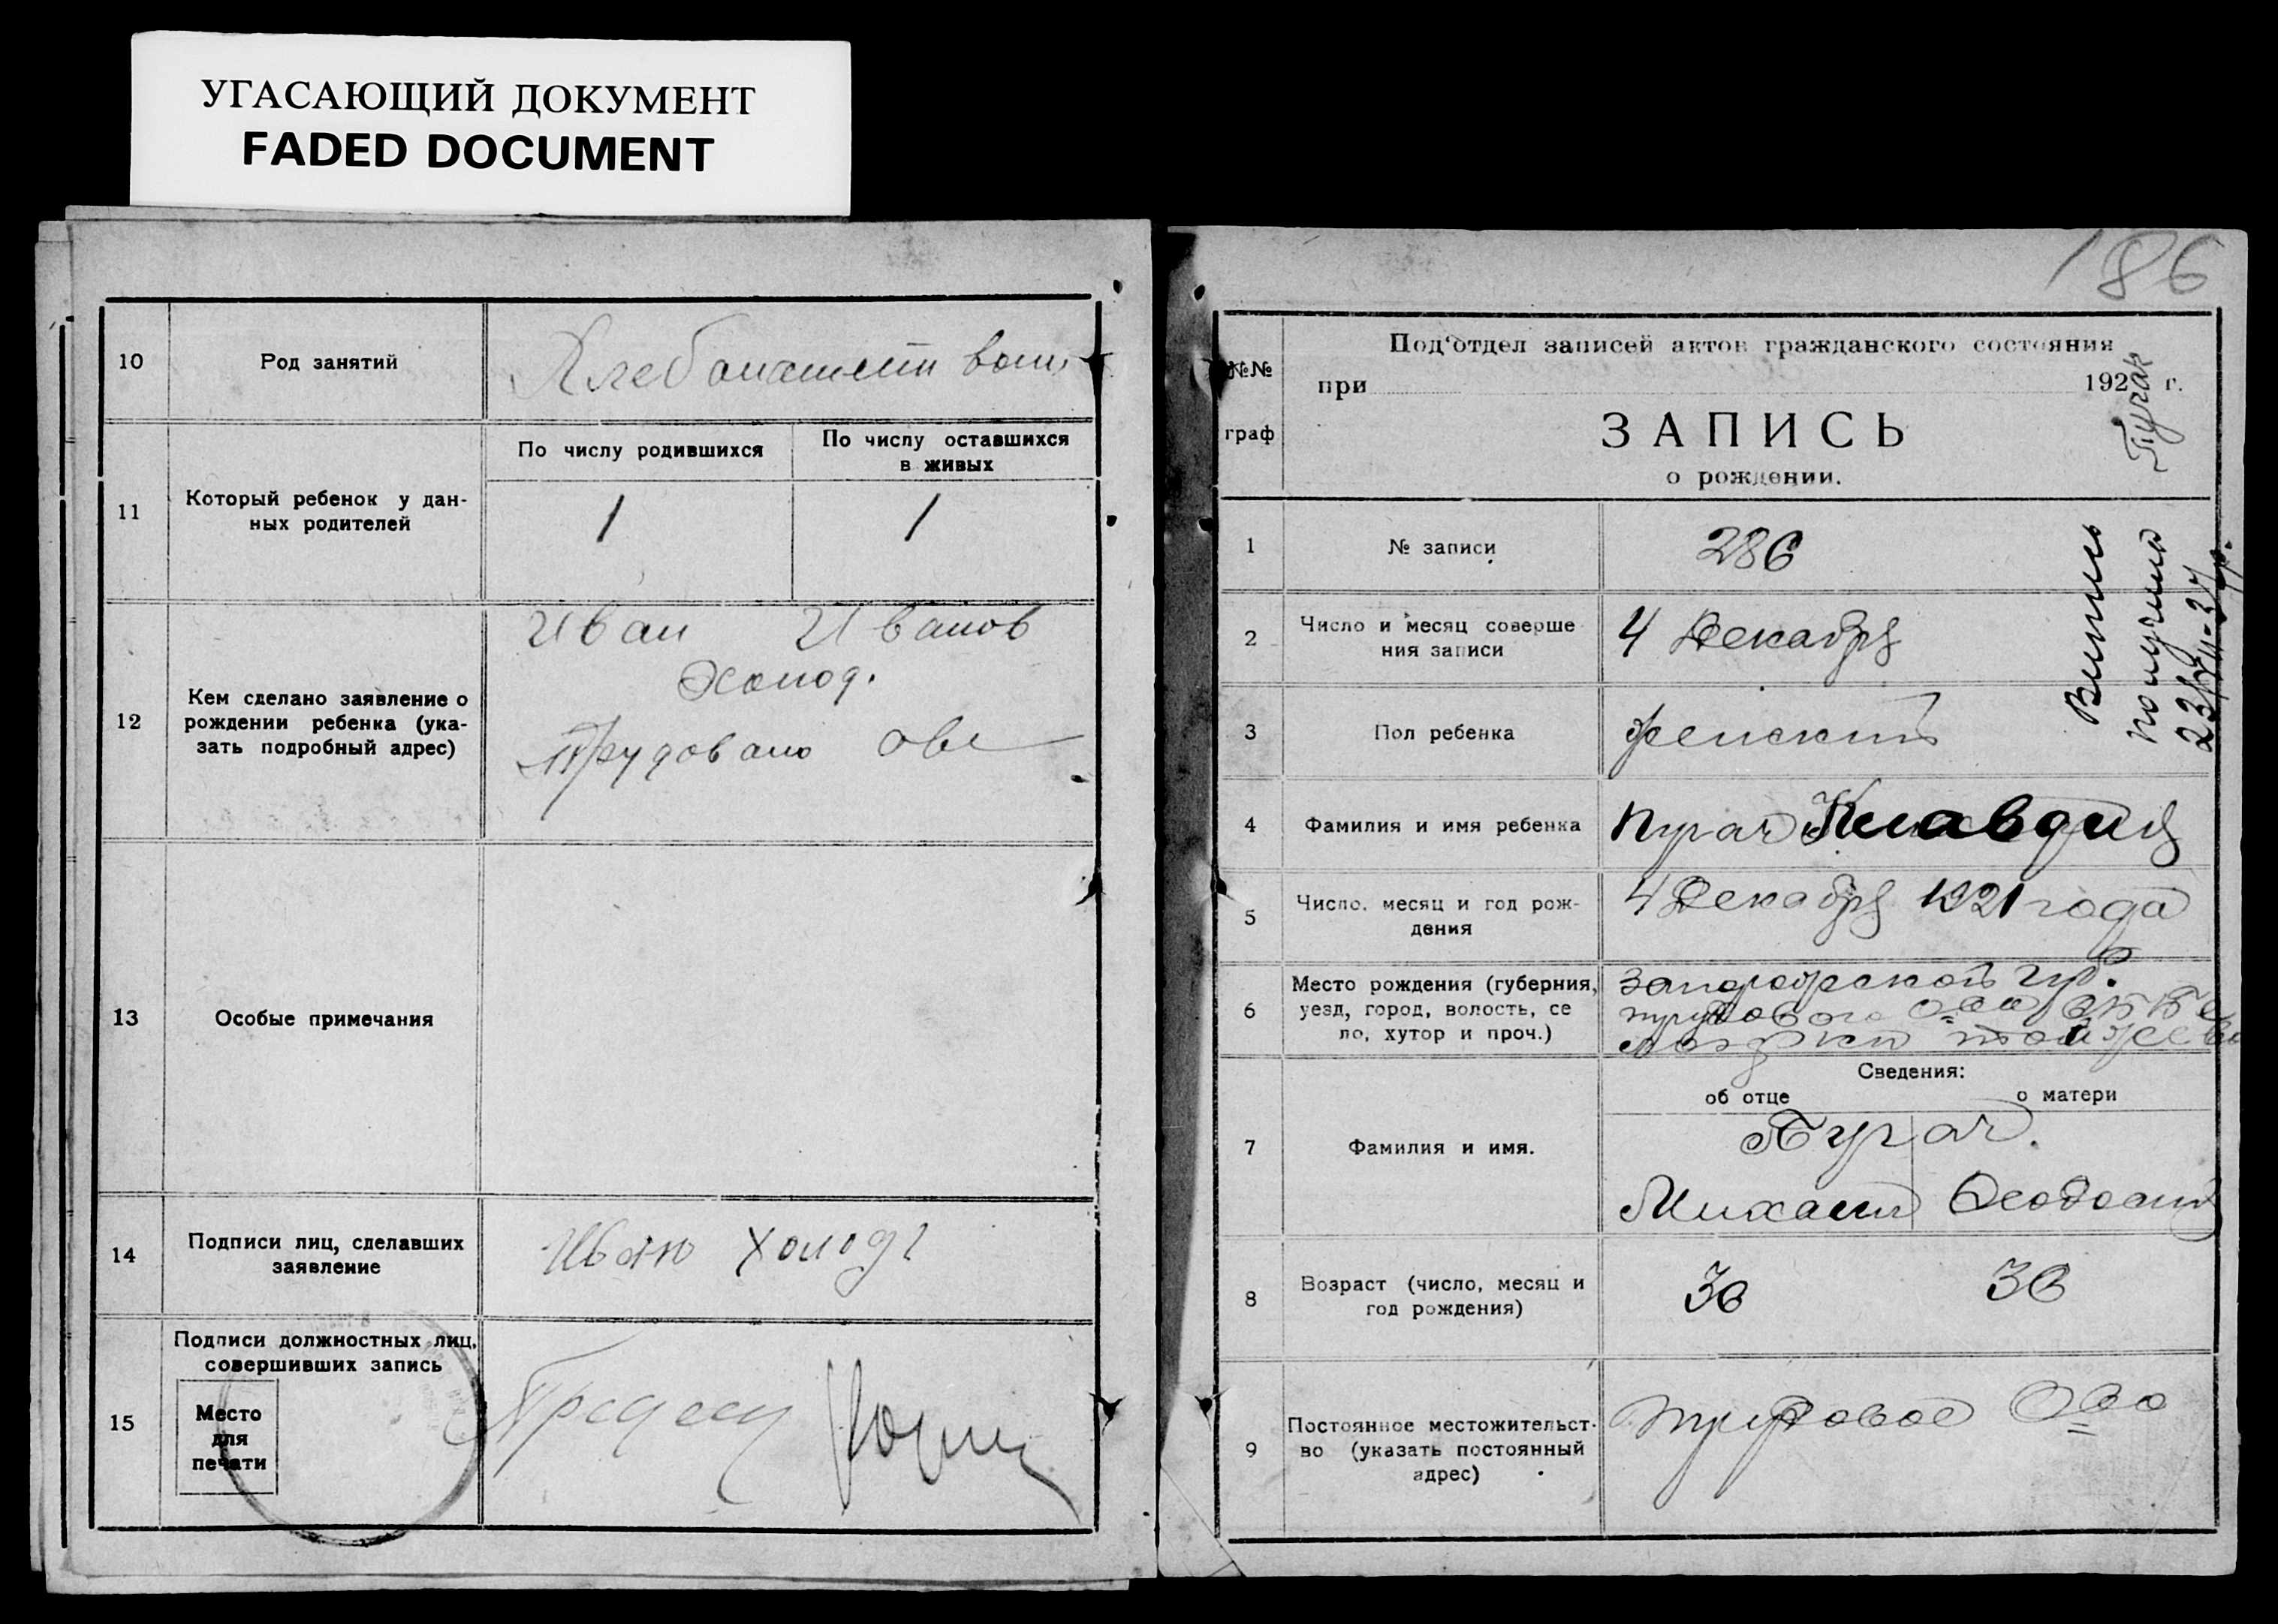 УГАСАЮЩИЙ ДОКУМЕНТ
FADED DOCUMENT
10 Род занятий
11 Который ребенок у дан-
ных родителей
По числу родившихся
По числу оставшихся
в живых
1 1
12 Кем сделано заявление о
рождении ребенка (ука-
зать подробный адрес)
Иван Иванов
Холод.
13 Особые примечания
14 Подписи лиц, сделавших
заявление
Иван Холод
15 Подписи должностных лиц,
совершивших запись
Место
для
печати
186
№№
граф
Под'отдел записей актов гражданского состояния
при 192 г.
ЗАПИСЬ
о рождении.
Пугач
1 № записи 286
2 Число и месяц соверше
ния записи
4 Декабря
3 Пол ребенка женский
4 Фамилия и имя ребенка Пугач Клавдия
5 Число, месяц и год рож-
дения
4 Декабря 1921 года
6 Место рождения (губерния,
уезд, город, волость, се
ло, хутор и проч.)
Сведения:
об отце о матери
7 Фамилия и имя.
Пугач.
Михаил
8 Возраст (число, месяц и
год рождения)
36 36
9 Постоянное местожительст-
во (указать постоянный
адрес)